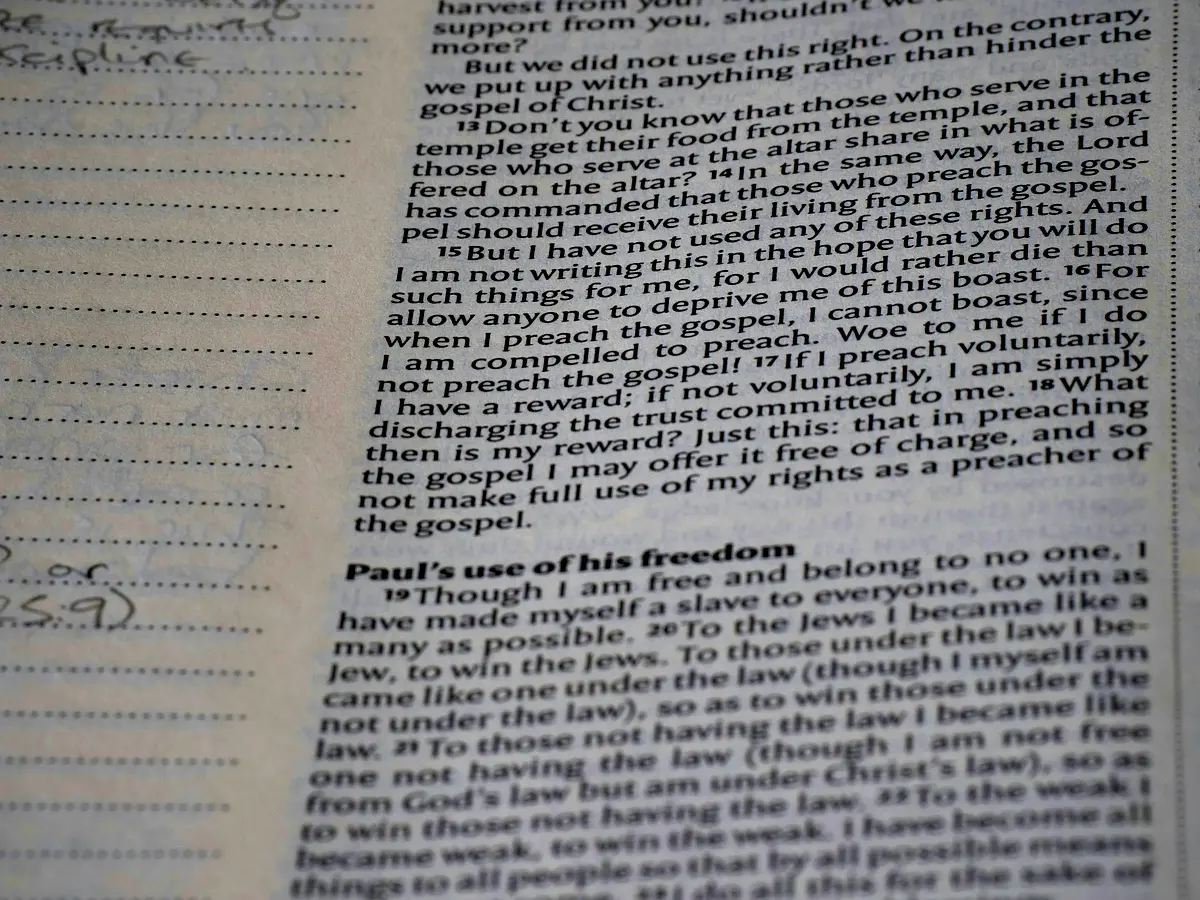 be require
scipline
or
25:9)
harvest from you?
support from you, shouldn't we
more?
But we did not use this right. On the contrary,
we put up with anything rather than hinder the
gospel of Christ.
13 Don't you know that those who serve in the
temple get their food from the temple, and that
those who serve at the altar share in what is of-
fered on the altar? 14 In the same way, the Lord
has commanded that those who preach the gos-
pel should receive their living from the gospel.
15 But I have not used any of these rights. And
I am not writing this in the hope that you will do
such things for me, for I would rather die than
allow anyone to deprive me of this boast. 16 For
when I preach the gospel, I cannot boast, since
I am compelled to preach. Woe to me if I do
not preach the gospel! 17 If I preach voluntarily,
I have a reward; if not voluntarily, I am simply
discharging the trust committed to me. 18 What
then is my reward? Just this: that in preaching
the gospel I may offer it free of charge, and so
not make full use of my rights as a preacher of
the gospel.
Paul's use of his freedom
19 Though I am free and belong to no one, I
have made myself a slave to everyone, to win as
many as possible. 20 To the Jews I became like a
Jew, to win the Jews. To those under the law I be-
came like one under the law (though I myself am
not under the law), so as to win those under the
law. 21 To those not having the law I became like
one not having the law (though I am not free
from God's law but am under Christ's law), so as
to win those not having the law. 22 To the weak I
became weak, to win the weak. I have become all
things to all people so that by all possible means
I do all this for the sake of